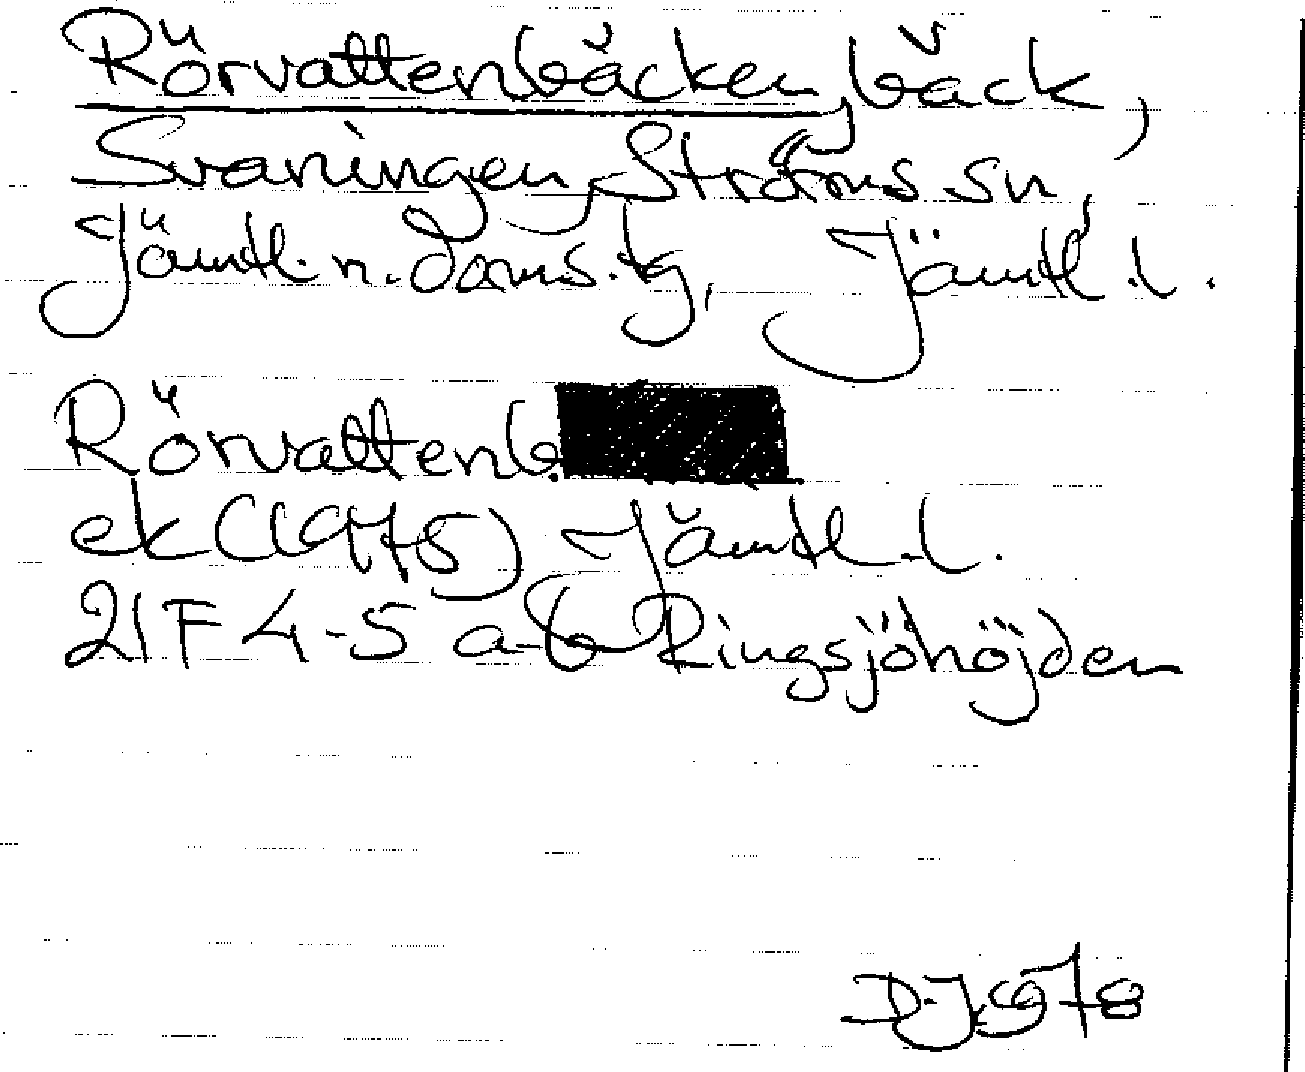 Rörvattenbäcken, bäck,
Svaningen, Ströms sn,
Jämtl. n. doms.tg, Jämtl. l.
Rörvattenb
ek (1975) Jämtl. l.
21F 4-5 a-b Ringsjöhöjden